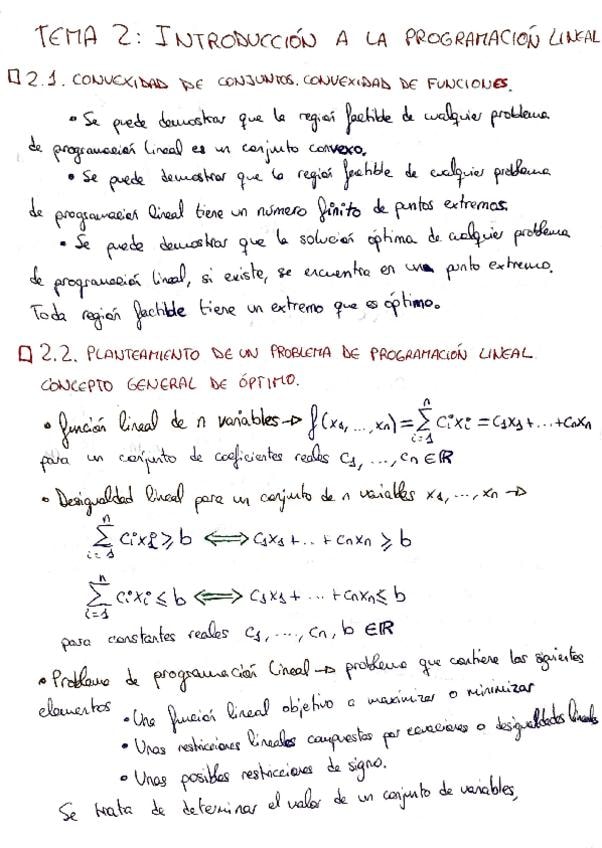 TEMA 2: INTRODUCCIÓN A LA PROGRAMACIÓN LINEAL
□ 2.1. CONVEXIDAD DE CONJUNTOS. CONVEXIDAD DE FUNCIONES.
• Se puede demostrar que la región factible de cualquier problema
de programación lineal es un conjunto convexo.
• Se puede demostrar que la región factible de cualquier problema
de programación lineal tiene un número finito de puntos extremos.
• Se puede demostrar que la solución óptima de cualquier problema
de programación lineal, si existe, se encuentra en un punto extremo.
Toda región factible tiene un extremo que es óptimo.
□ 2.2. PLANTEAMIENTO DE UN PROBLEMA DE PROGRAMACIÓN LINEAL.
CONCEPTO GENERAL DE ÓPTIMO.
• función lineal de n variables → f(x₁, ..., xₙ) = ∑ⁿᵢ₌₁ cᵢxᵢ = c₁x₁ + ... + cₙxₙ
para un conjunto de coeficientes reales c₁, ..., cₙ ∈ ℝ
• Desigualdad lineal para un conjunto de n variables x₁, ..., xₙ →
∑ⁿᵢ₌₁ cᵢxᵢ ≥ b ⟺ c₁x₁ + .. + cₙxₙ ≥ b
∑ⁿᵢ₌₁ cᵢxᵢ ≤ b ⟺ c₁x₁ + ... + cₙxₙ ≤ b
para constantes reales c₁, ..., cₙ, b ∈ ℝ
• Problema de programación lineal → problema que contiene los siguientes
elementos • Una función lineal objetivo a maximizar o minimizar
• Unas restricciones lineales compuestas por ecuaciones o desigualdades lineales
• Unas posibles restricciones de signo.
Se trata de determinar el valor de un conjunto de variables,